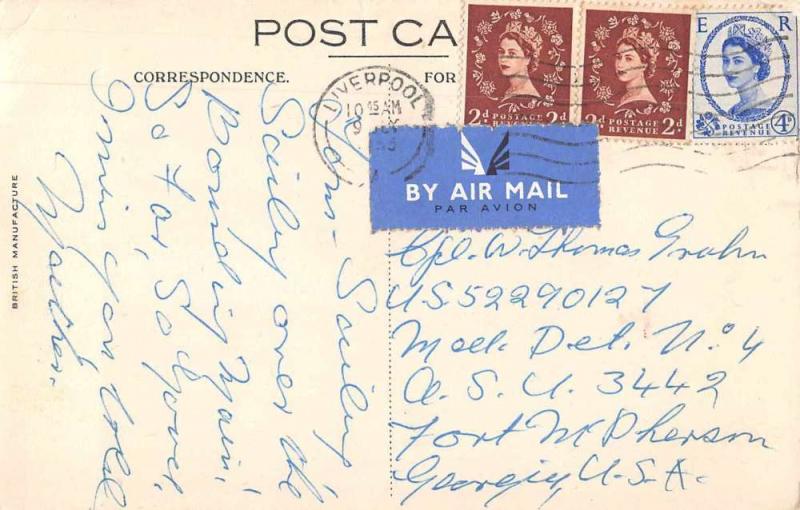 POST CA
CORRESPONDENCE.
FOR
BRITISH MANUFACTURE
LIVERPOOL
10 45 AM
9
2d POSTAGE REVENUE 2d
2d POSTAGE REVENUE 2d
E R
POSTAGE REVENUE 4D
BY AIR MAIL
PAR AVION
Tom - Sailing
Sailing over the
Bounding Main!
So Far, So Good,
Miss you
Mother.
Cpl. W. Thomas Grahn
US52290127
Med. Det. No. 4
A.S.U. 3442
Fort McPherson
Georgia, U.S.A.